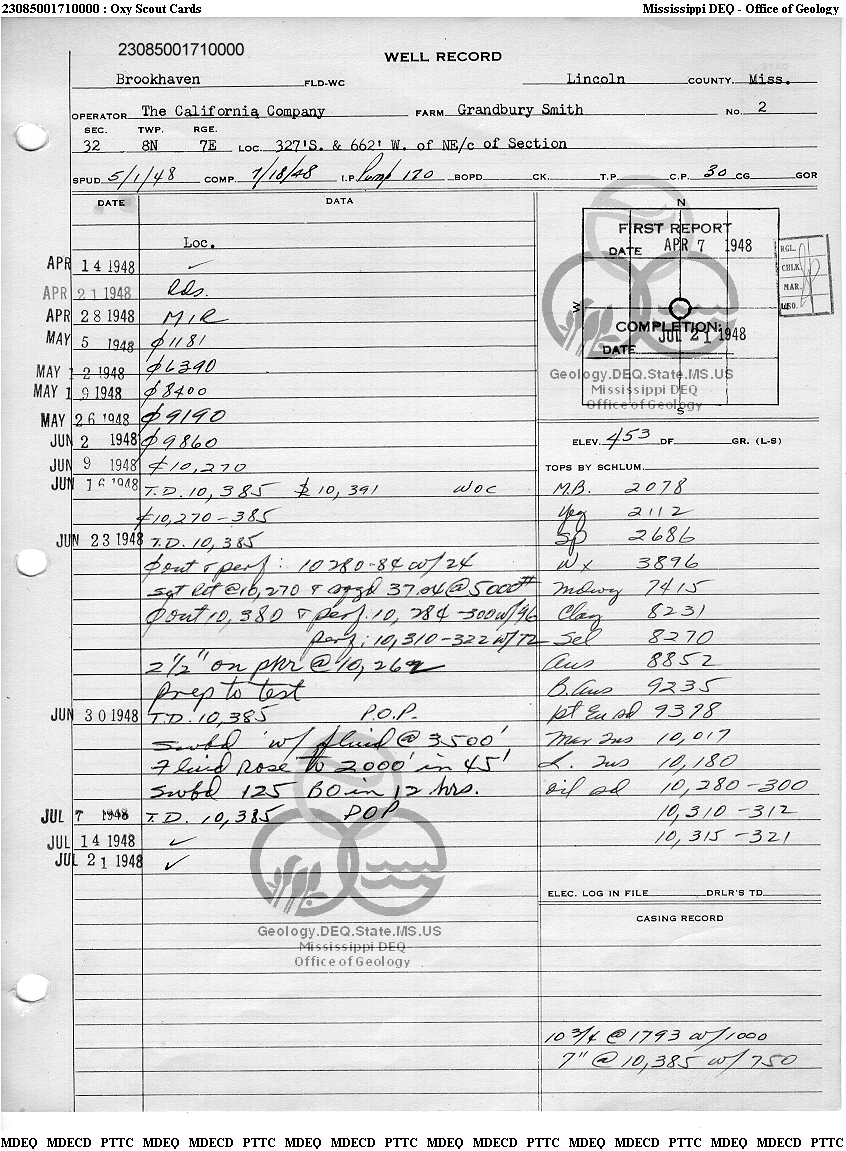 23085001710000 : Oxy Scout Cards Mississippi DEQ - Office of Geology
23085001710000
WELL RECORD
Brookhaven FLD-WC Lincoln COUNTY. Miss.
OPERATOR The California Company FARM Grandbury Smith No. 2
SEC. TWP. RGE.
32 8N 7E LOC. 327'S. & 662' W. of NE/c of Section
SPUD 5/1/48 COMP. 7/18/48 I.P. Pump 170 BOPD CK. T.P. C.P. 30 CG GOR
DATE DATA
Loc.
APR 14 1948 ✓
APR 21 1948 Rds.
APR 28 1948 MIR
MAY 5 1948 ⌀1181
MAY 12 1948 ⌀6390
MAY 19 1948 ⌀8400
MAY 26 1948 ⌀9190
JUN 2 1948 ⌀9860
JUN 9 1948 ⌀10,270
JUN 16 1948 T.D. 10,385 10,391 WOC
10,270-385
JUN 23 1948 T.D. 10,385
⌀out & perf: 10280-84 w/24
Set Ret @ 10,270 & sqzd 37.04 @ 5000#
⌀out 10,380 & perf. 10,284-300 w/96
perf; 10,310-322 w/72
2 1/2" on pkr @ 10,262
Prep to test
JUN 30 1948 T.D. 10,385 P.O.P.
Swbd w/ fluid @ 3500'
Fluid Rose to 2000' in 45'
Swbd 125 BO in 12 hrs.
JUL 7 1948 T.D. 10,385 POP
JUL 14 1948 ✓
JUL 21 1948 ✓
N
FIRST REPORT
DATE APR 7 1948
W
COMPLETION:
JUL 21 1948
DATE
S
RGL.
CHLK.
MAR.
Geology.DEQ.State.MS.US
Mississippi DEQ
Office of Geology
ELEV. 453 DF GR. (L-S)
TOPS BY SCHLUM.
M.B. 2078
Yeg 2112
Sp 2686
Wx 3896
Mdwy 7415
Clay 8231
Sel 8270
Aus 8852
B. Aus 9235
pt Eu sd 9398
Mar Tus 10,017
L. Tus 10,180
oil sd 10,280-300
10,310-312
10,315-321
ELEC. LOG IN FILE DRLR'S TD
CASING RECORD
10 3/4 @ 1793 w/1000
7" @ 10,385 w/750
Geology.DEQ.State.MS.US
Mississippi DEQ
Office of Geology
MDEQ MDECD PTTC MDEQ MDECD PTTC MDEQ MDECD PTTC MDEQ MDECD PTTC MDEQ MDECD PTTC MDEQ MDECD PTTC